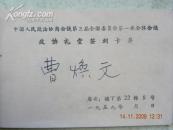 中国人民政治协商会议第三届全国委员会第一次全体会议
政协礼堂签到卡片
曹焕元
座位：楼下第22排8号
一九五九年 月 日
14-11-2009 12:31